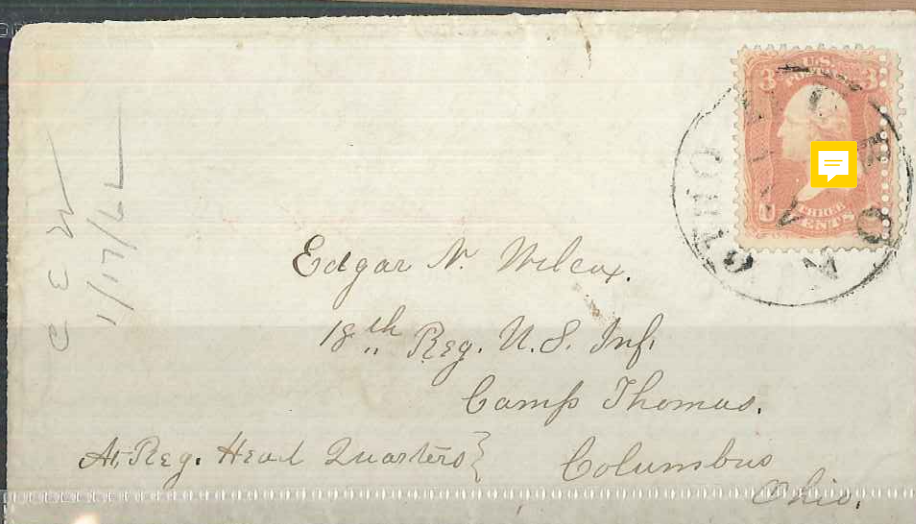 U.S.
3 3
THREE
CENTS
OHIO
C E W
1/17/62
Edgar N. Wilcox.
18th Reg. U.S. Inf.
Camp Thomas.
At Reg. Head Quarters}
Columbus
Ohio.